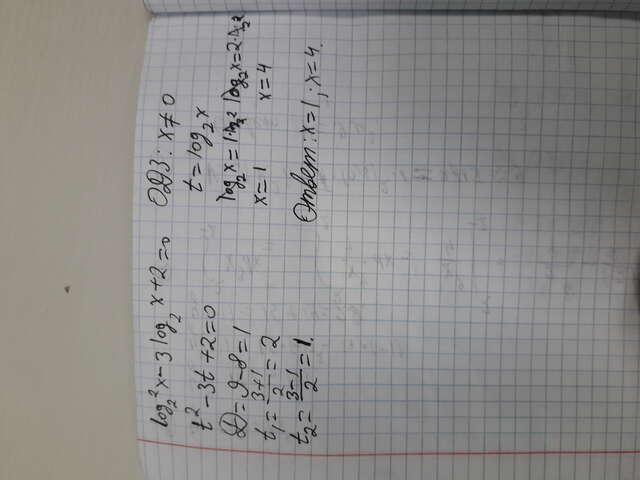 log₂²x-3log₂x+2=0
t²-3t+2=0
D=9-8=1
t₁=(3+1)/2=2
t₂=(3-1)/2=1.
ОДЗ: x≠0
t=log₂x
log₂x=1·log₂2 log₂x=2·log₂2
x=1 x=4
Ответ: x=1; x=4.